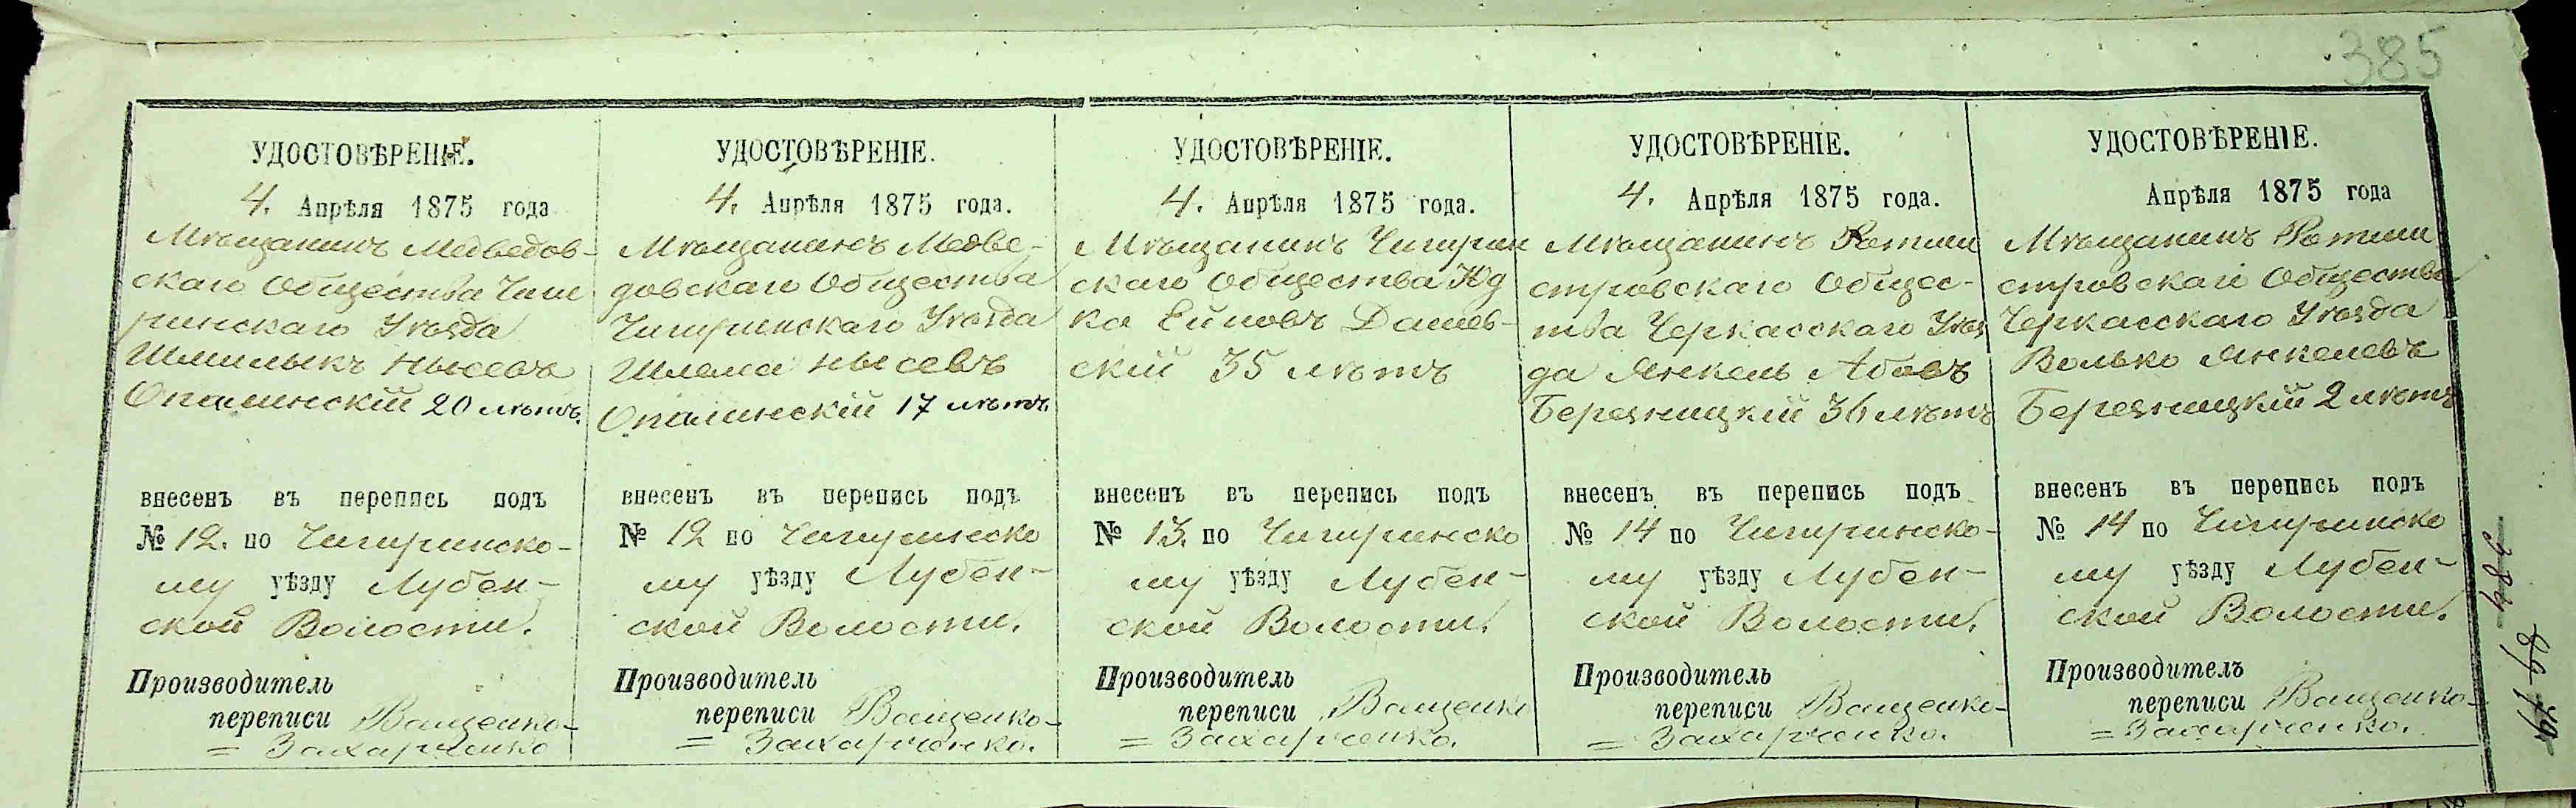 385
УДОСТОВѢРЕНІЕ.
4. Апрѣля 1875 года
Мѣщанинъ Медведов-
скаго Общества Чиги
ринскаго Уѣзда
Шмилыкъ Нысевъ
Опалинскій 20 лѣтъ.
внесенъ въ перепись подъ
№ 12. по Чигиринско-
му уѣзду Лубен-
ской Волости.
Производитель
переписи Ващенко-
= Захарченко
УДОСТОВѢРЕНІЕ.
4. Апрѣля 1875 года.
Мѣщанинъ Медве-
довскаго Общества
Чигиринскаго Уѣзда
Шлема Нысевъ
Опалинскій 17 лѣтъ.
внесенъ въ перепись подъ
№ 12 по Чигиринско
му уѣзду Лубен-
ской Волости.
Производитель
переписи Ващенко-
= Захарченко.
УДОСТОВѢРЕНІЕ.
4. Апрѣля 1875 года.
Мѣщанинъ Чигирин
скаго Общества Юд
ка Ейновъ Дашев-
скій 35 лѣтъ
внесенъ въ перепись подъ
№ 13. по Чигиринско
му уѣзду Лубен-
ской Волости.
Производитель
переписи Ващенко
= Захарченко.
УДОСТОВѢРЕНІЕ.
4. Апрѣля 1875 года.
Мѣщанинъ Ротми
стровскаго Общес-
тва Черкасскаго Уѣз
да Янкель Абовъ
Березницкій 36 лѣтъ
внесенъ въ перепись подъ
№ 14 по Чигиринско-
му уѣзду Лубен-
ской Волости.
Производитель
переписи Ващенко-
= Захарченко.
УДОСТОВѢРЕНІЕ.
Апрѣля 1875 года
Мѣщанинъ Ротми
стровскаго Общества
Черкасскаго Уѣзда
Волько Янкелевъ
Березницкій 2 лѣтъ
внесенъ въ перепись подъ
№ 14 по Чигиринско
му уѣзду Лубен-
ской Волости.
Производитель
переписи Ващенко-
= Захарченко.
384